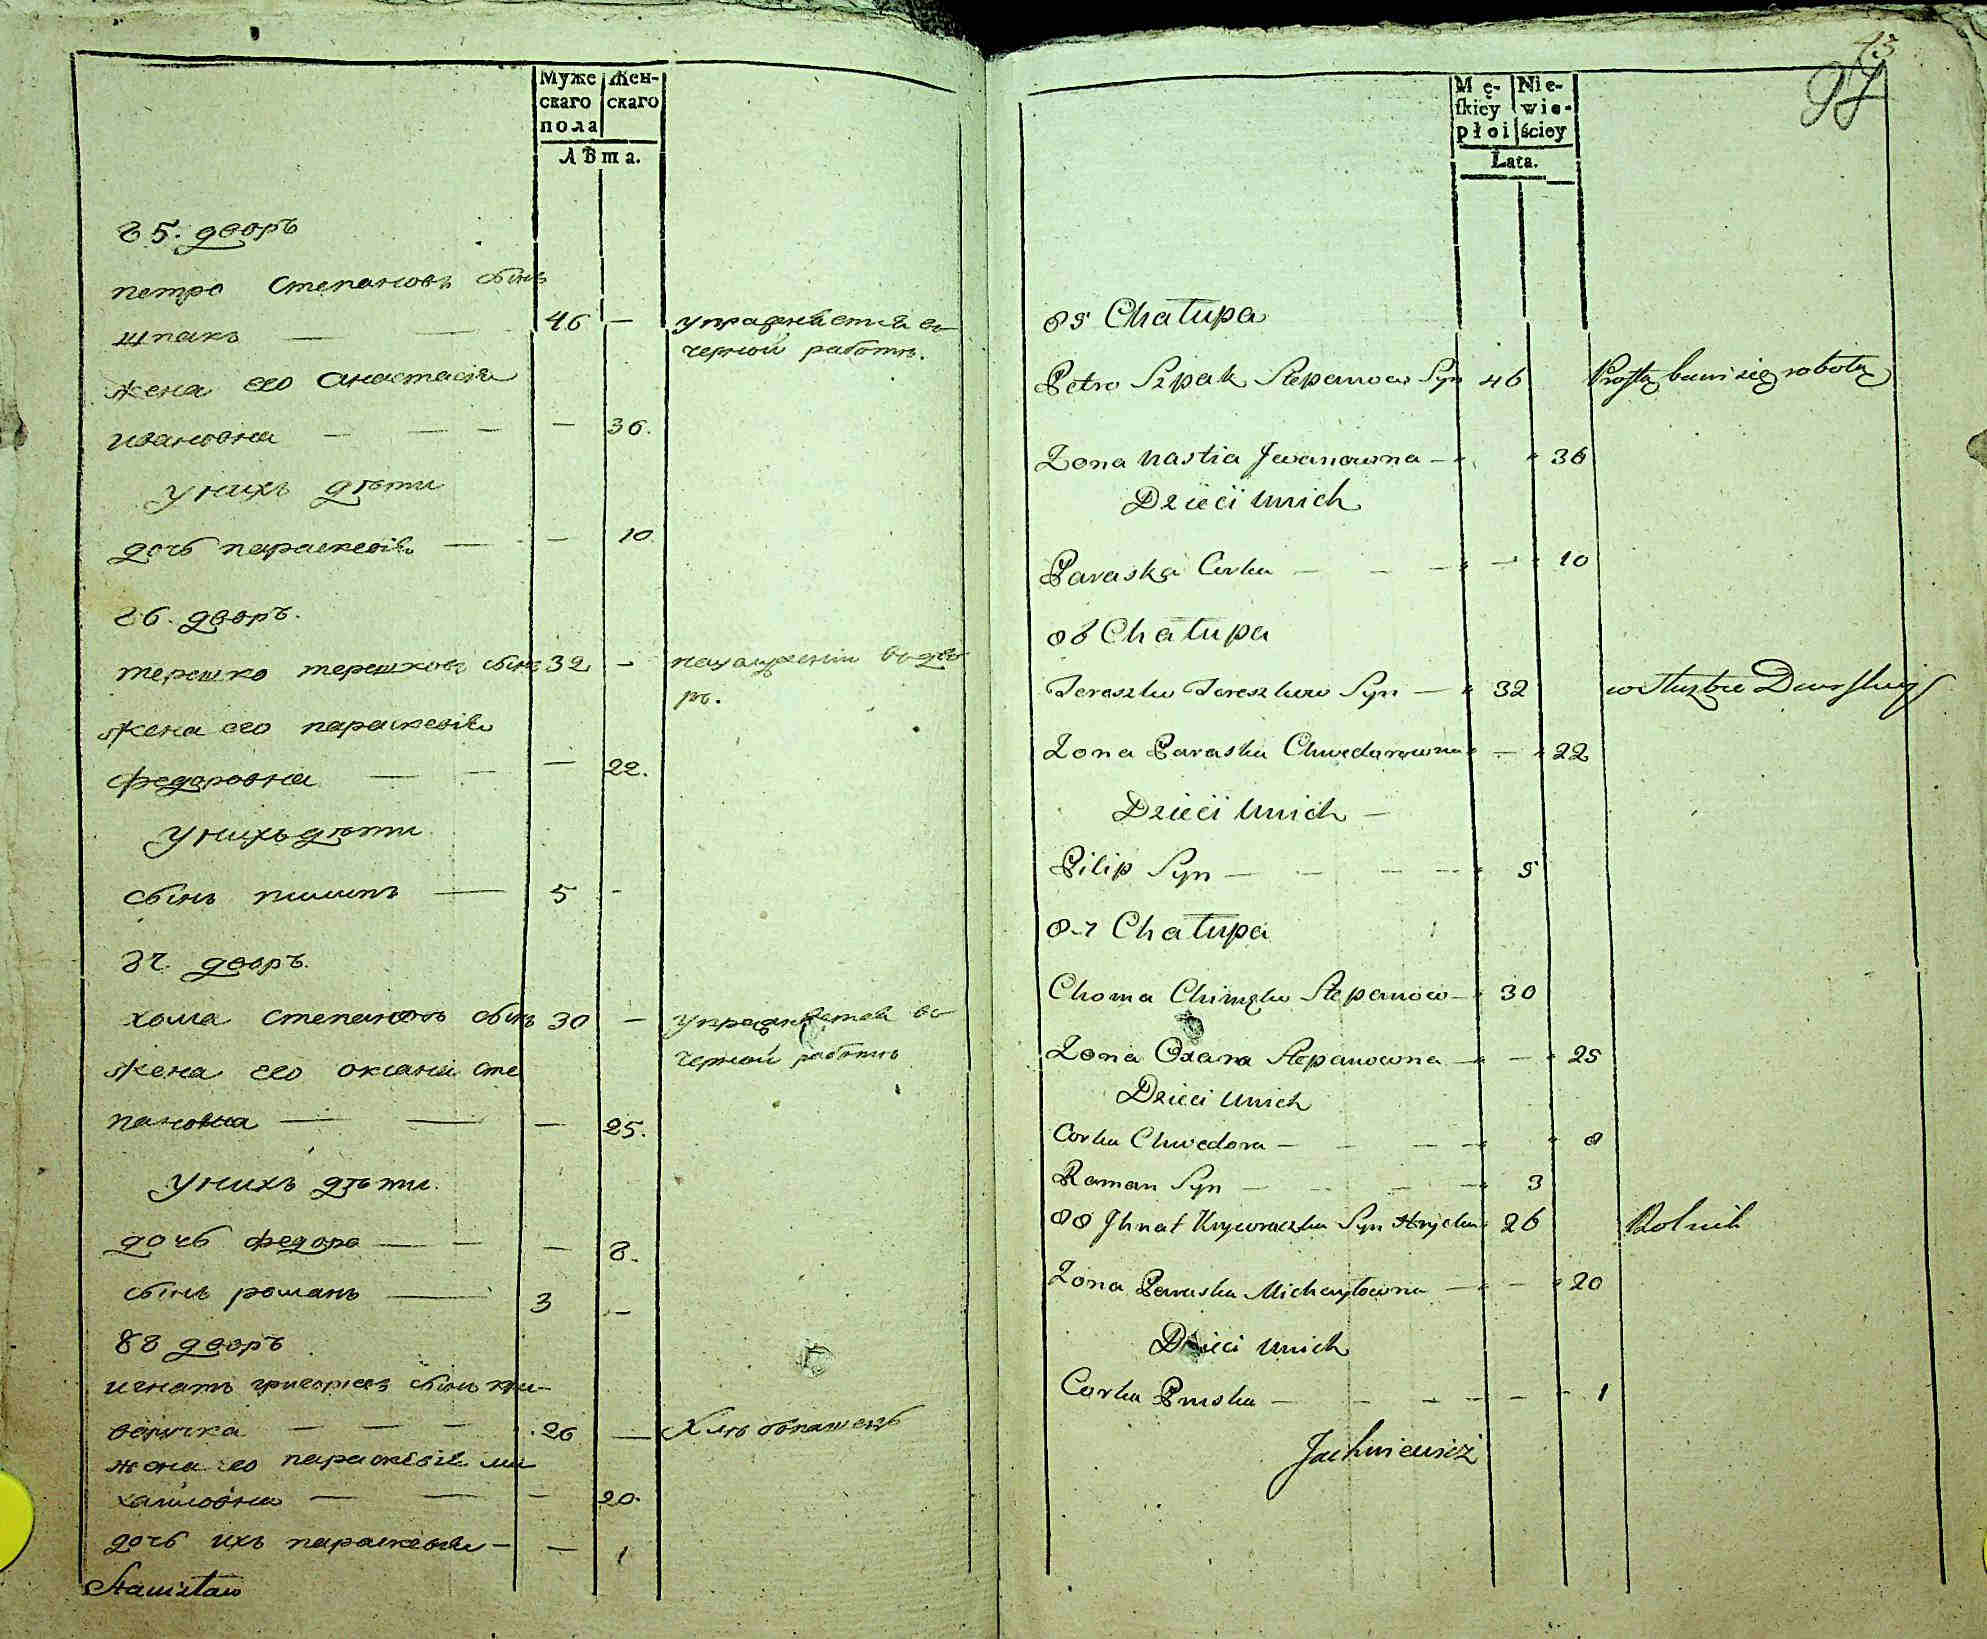 Муже Жен-
скаго скаго
пола
Лѣта.
85. дворъ
петро Степановъ сынъ
шпакъ — — 46 — упражняется въ
черной работѣ.
жена его Анастасія
ивановна — — — — 36.
у нихъ дѣти
дочь параскевія — — 10
86. дворъ.
терешко терешковъ сынъ 32 —
рѣ.
жена его параскевія
федоровна — — — 22.
у нихъ дѣти
сынъ пилипъ — 5 -
87. дворъ.
хома степановъ сынъ 30 — упражняется въ
жена его оксана сте черной работѣ
пановна — — — 25.
у нихъ дѣти.
дочь федора — — — 8.
сынъ романъ — 3 —
88 дворъ
игнатъ григорьевъ сынъ кри-
воручка — — — 26 — Хлѣбопашецъ
жена его параскевія ми
хайловна — — — 20.
дочь ихъ параскевія — — 1
Stanisław
13
97
Mę- Nie-
skiey wie-
płci ściey
Lata.
85 Chałupa
Petro Szpak Stepanow Syn 46 Prostą bawi się robotą
Zona Nastia Jwanowna — 36
Dzieci unich
Paraska Corka — — — — 10
86 Chałupa
Tereszko Tereszkow Syn — 32 w służbie Dworskiey
Zona Paraska Chwedorowna — 22
Dzieci unich —
Pilip Syn — — — — 5
87 Chałupa
Choma Stepanow — 30
Zona Oxana Stepanowna — — 25
Dzieci unich
Corka Chwedora — — — — 8
Roman Syn — — — — 3
88 Jhnat Kryworuczka Syn Hrycka 26 Rolnik
Zona Paraska Michayłowna — — 20
Dzieci unich
Corka Pruska — — — — — — 1
Jachniewicz